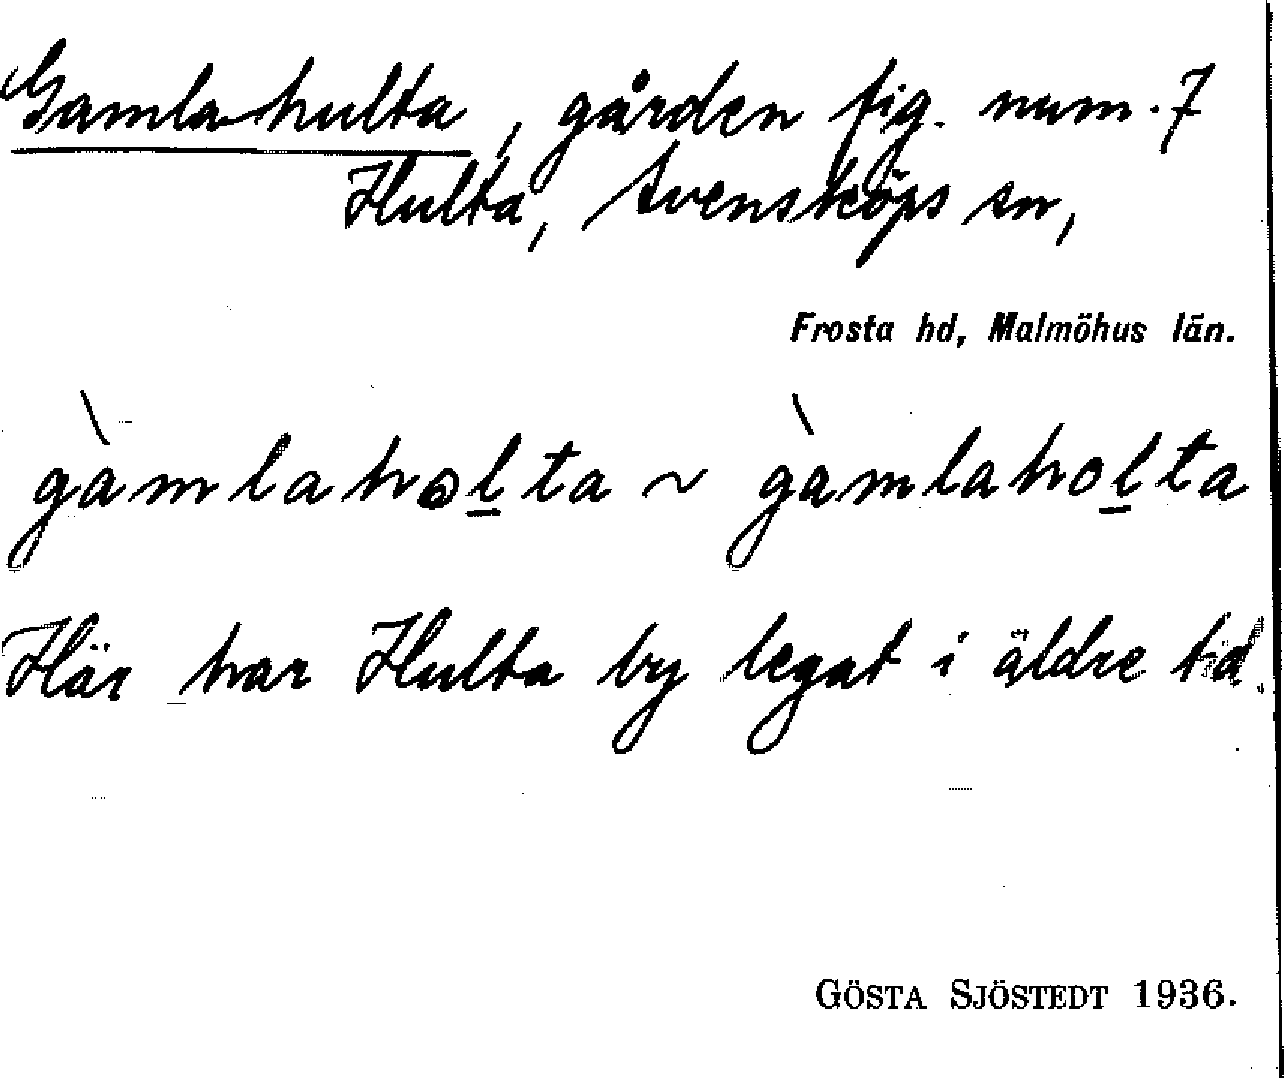 Gamla hulta, gården fig. num. 7
Hulta, Svensköps sn,
Frosta hd, Malmöhus län.
gàmlahol̲ta ~ gàmlahol̲ta
Här har Hulta by legat i äldre tid.
GÖSTA SJÖSTEDT 1936.